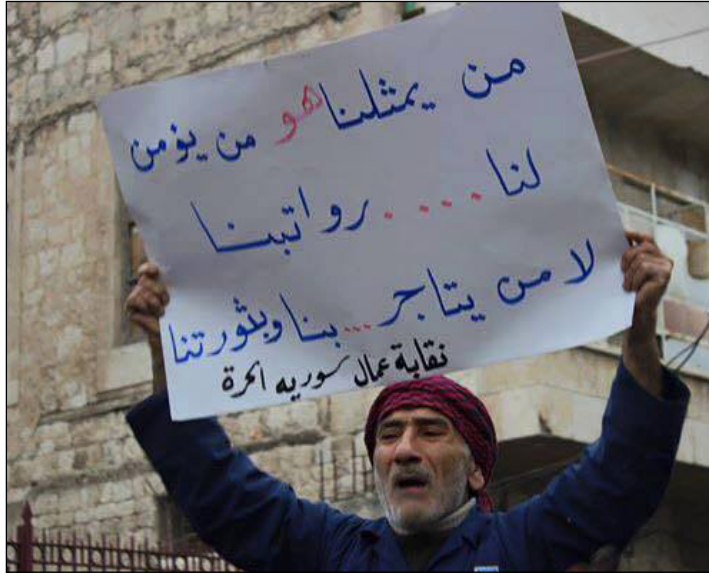 من يمثلنا هو من يؤمن
لنا .... رواتبنا
لا من يتاجر ... بنا وبثورتنا
نقابة عمال سوريه الحرة